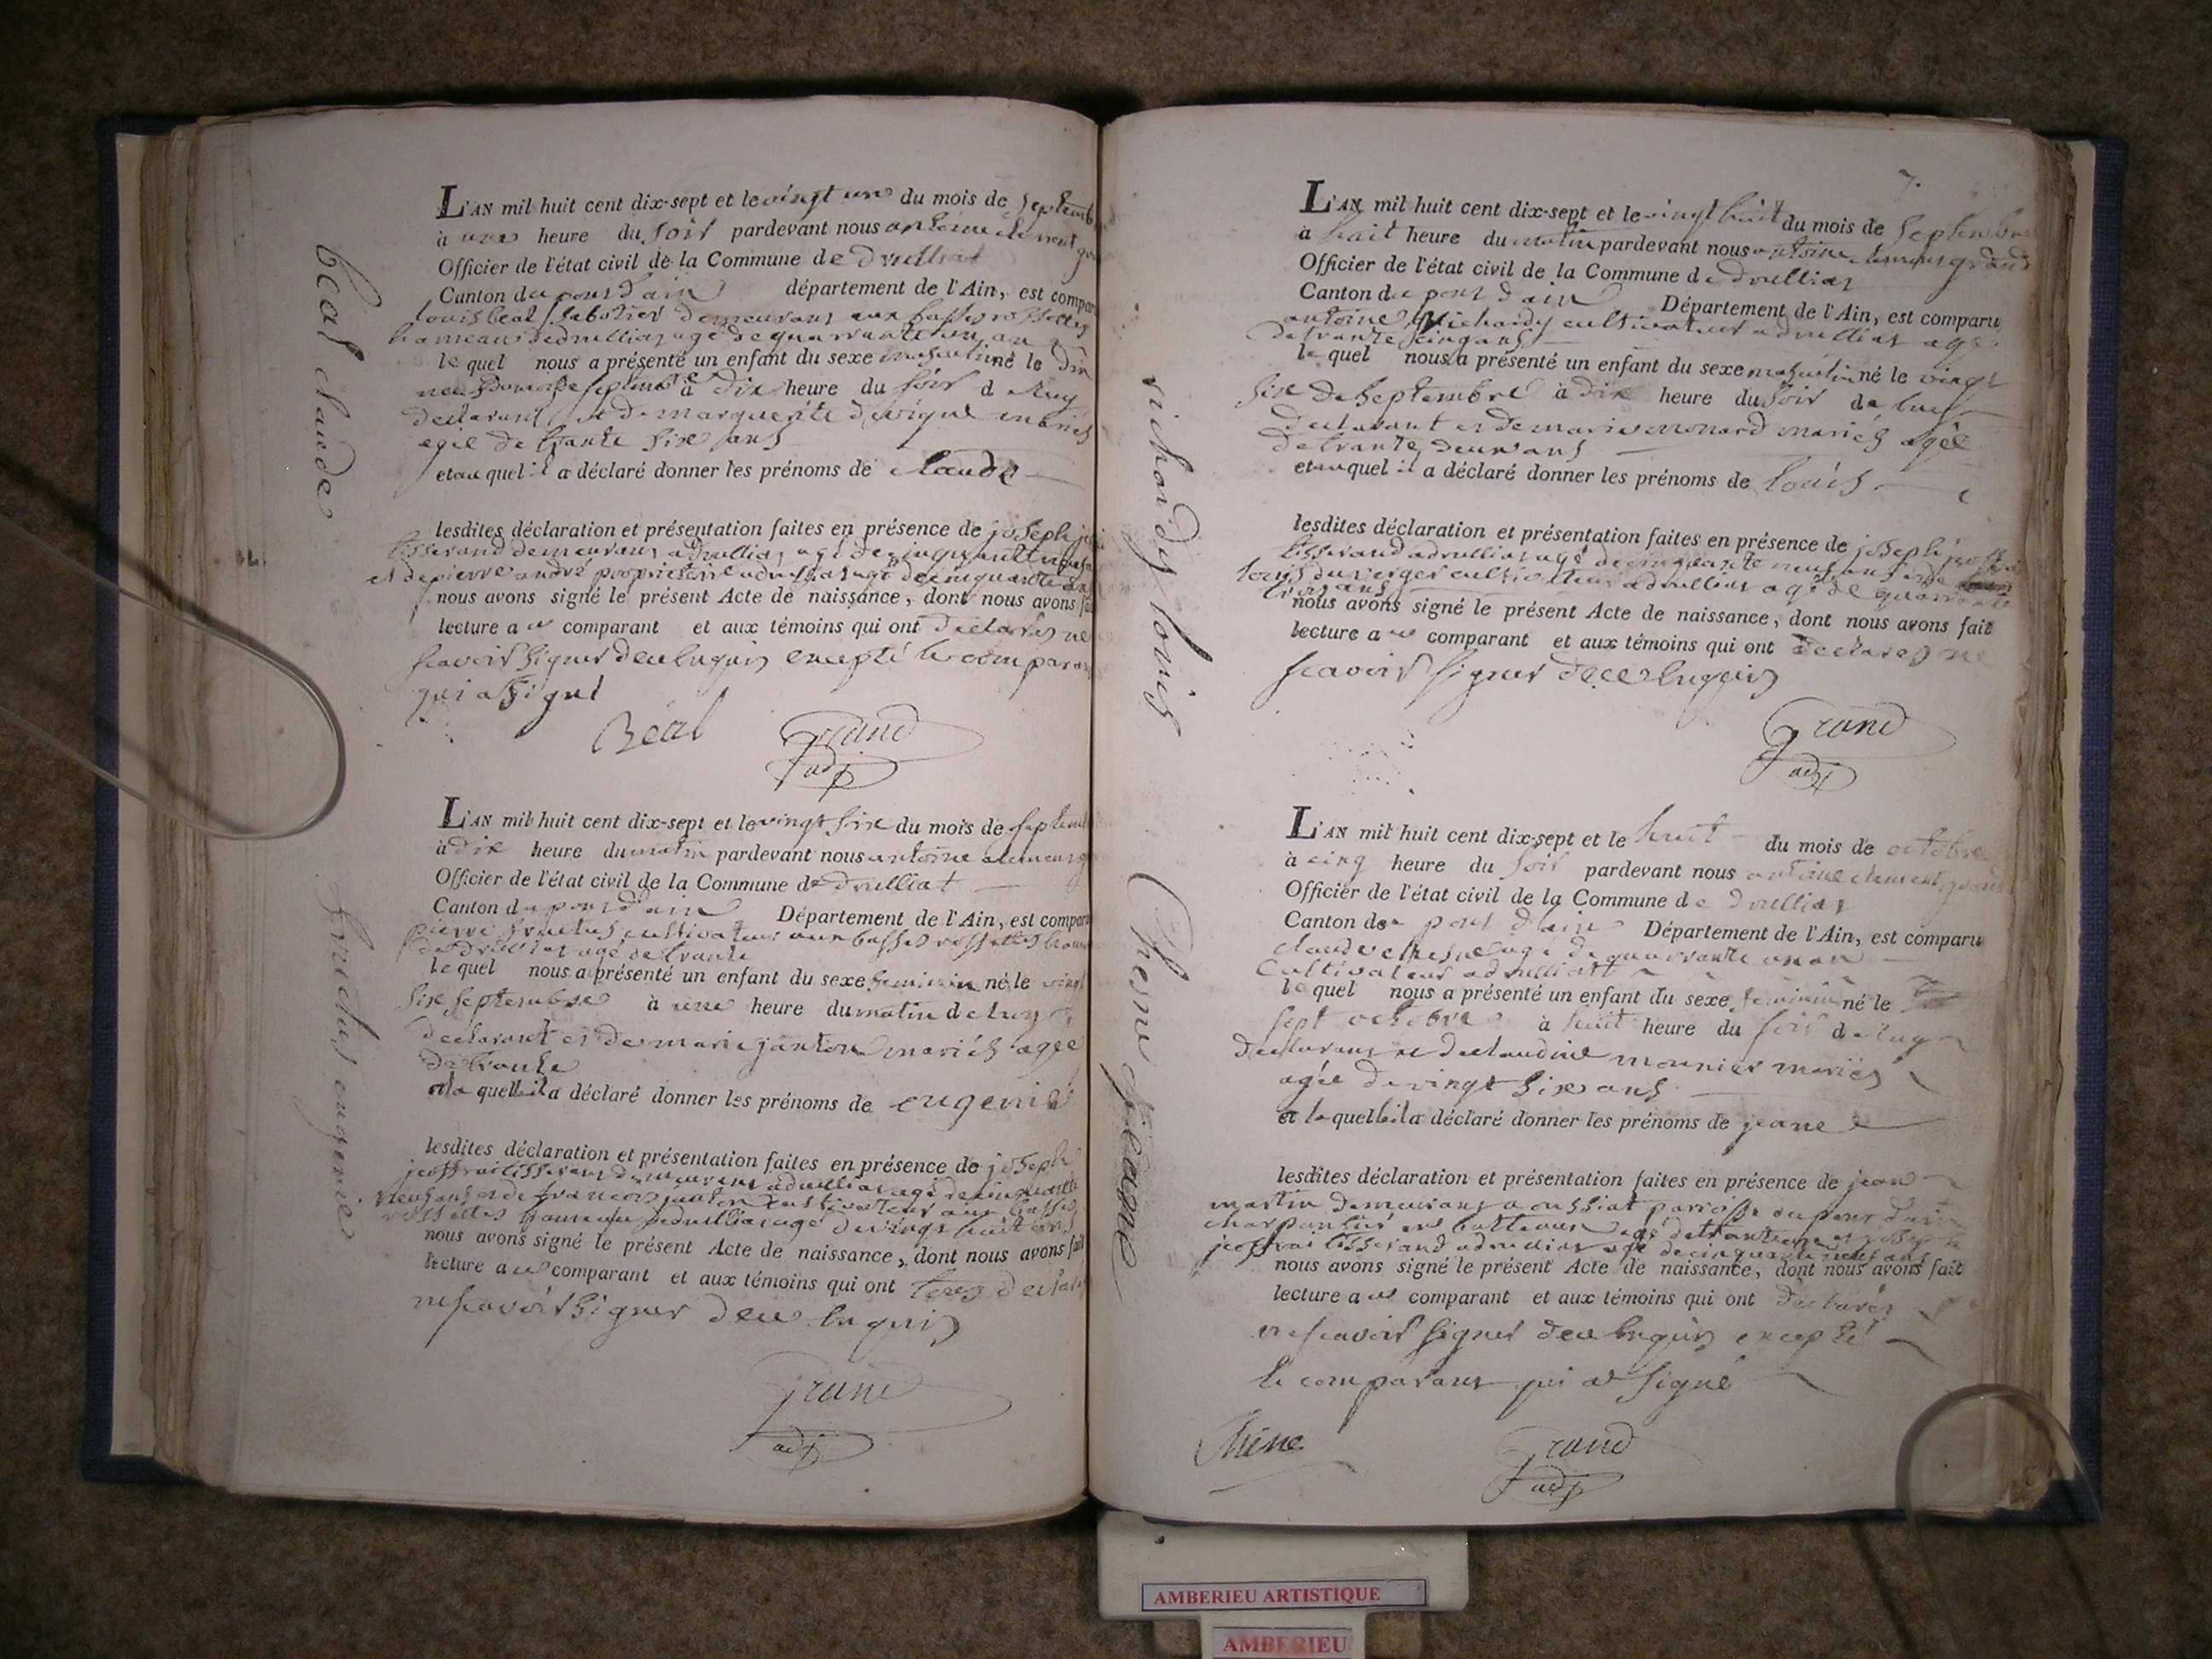 beal claude
L'AN mil huit cent dix-sept et le vingt un du mois de septemb
à une heure du soir pardevant nous antoine clement
Officier de l'état civil de la Commune de druillat
Canton du pont d'ain département de l'Ain, est compar
louis beal sabotier demeurant aux basses rossettes
hameau de druillat agé de quarrante un an
le quel nous a présenté un enfant du sexe masculin né le dix
neuf du mois de septembre à dix heure du soir d eluy
declarant et de marguerite mariés
agée de trante six ans
et au quel il a déclaré donner les prénoms de claude
lesdites déclaration et présentation faites en présence de joseph
tisserand demeurant a druillat agé de cinquante neuf
et de pierre andré proprietaire a druillat agé de cinquante
nous avons signé le présent Acte de naissance, dont nous avons fai
lecture a ce comparant et aux témoins qui ont declarés ne
scavoir signer de ce enquis excepté le comparan
qui a signé
Béal Grand
adj
fructus eugenie
L'AN mil huit cent dix-sept et le vingt six du mois de septem
à dix heure du matin pardevant nous antoine clement g
Officier de l'état civil de la Commune de druillat
Canton du pont d'ain Département de l'Ain, est compar
pierre fructus cultivateur aux basses rossettes ham
de druillat agé de trante
le quel nous a présenté un enfant du sexe feminin né le vingt
six septembre à une heure du matin de luy
declarant et de marie janton mariés agée
de trante
et la quelle il a déclaré donner les prénoms de eugenie
lesdites déclaration et présentation faites en présence de joseph
jeoffrai tisserant demeurant a druillat agé de cinquante
neuf ans et de francois janton cultivateur aux basses
rossettes hameau de druillat agé de vingt huit ans
nous avons signé le présent Acte de naissance, dont nous avons fait
lecture a ce comparant et aux témoins qui ont tous declaré
ne scavoir signer de ce enquis
Grand
adj
7.
richardy louis
L'AN mil huit cent dix-sept et le vingt huit du mois de septembre
à huit heure du matin pardevant nous antoine clement grand
Officier de l'état civil de la Commune de druillat
Canton du pont d'ain Département de l'Ain, est comparu
antoine Richardy cultivateur a druillat agé
de trante cinq ans
le quel nous a présenté un enfant du sexe masculin né le vingt
six de septembre à dix heure du soir de luy
declarant et de marie monard mariés agée
de trante deux ans
et au quel il a déclaré donner les prénoms de louis
lesdites déclaration et présentation faites en présence de joseph jeoffrai
tisserand a druillat agé de cinquante neuf ans et de
louis du verger cultivateur a druillat agé de quarrante
trois ans
nous avons signé le présent Acte de naissance, dont nous avons fait
lecture a ce comparant et aux témoins qui ont declarés ne
scavoir signer de ce enquis
Grand
adj
Chesne jeane
L'AN mil huit cent dix-sept et le huit du mois de octobre
à cinq heure du soir pardevant nous antoine clement grand
Officier de l'état civil de la Commune de druillat
Canton de pont d'ain Département de l'Ain, est comparu
claude chesne agé de quarrante un an
Cultivateur a druillat
le quel nous a présenté un enfant du sexe feminin né le
sept octobre à huit heure du soir de luy
declarant et de claudine mounier mariés
agée de vingt six ans
et la quelle il a déclaré donner les prénoms de jeane
lesdites déclaration et présentation faites en présence de jean
martin demeurant a oussiat paroisse du pont d'ain
charpantier en batteaux agé de trante et joseph
jeoffrai tisserand a druillat agé de cinquante neuf ans
nous avons signé le présent Acte de naissance, dont nous avons fait
lecture a ce comparant et aux témoins qui ont declarés
ne scavoir signer de ce enquis excepté
le comparant qui a signé
Chêne Grand
adj
AMBERIEU ARTISTIQUE
AMBERIEU